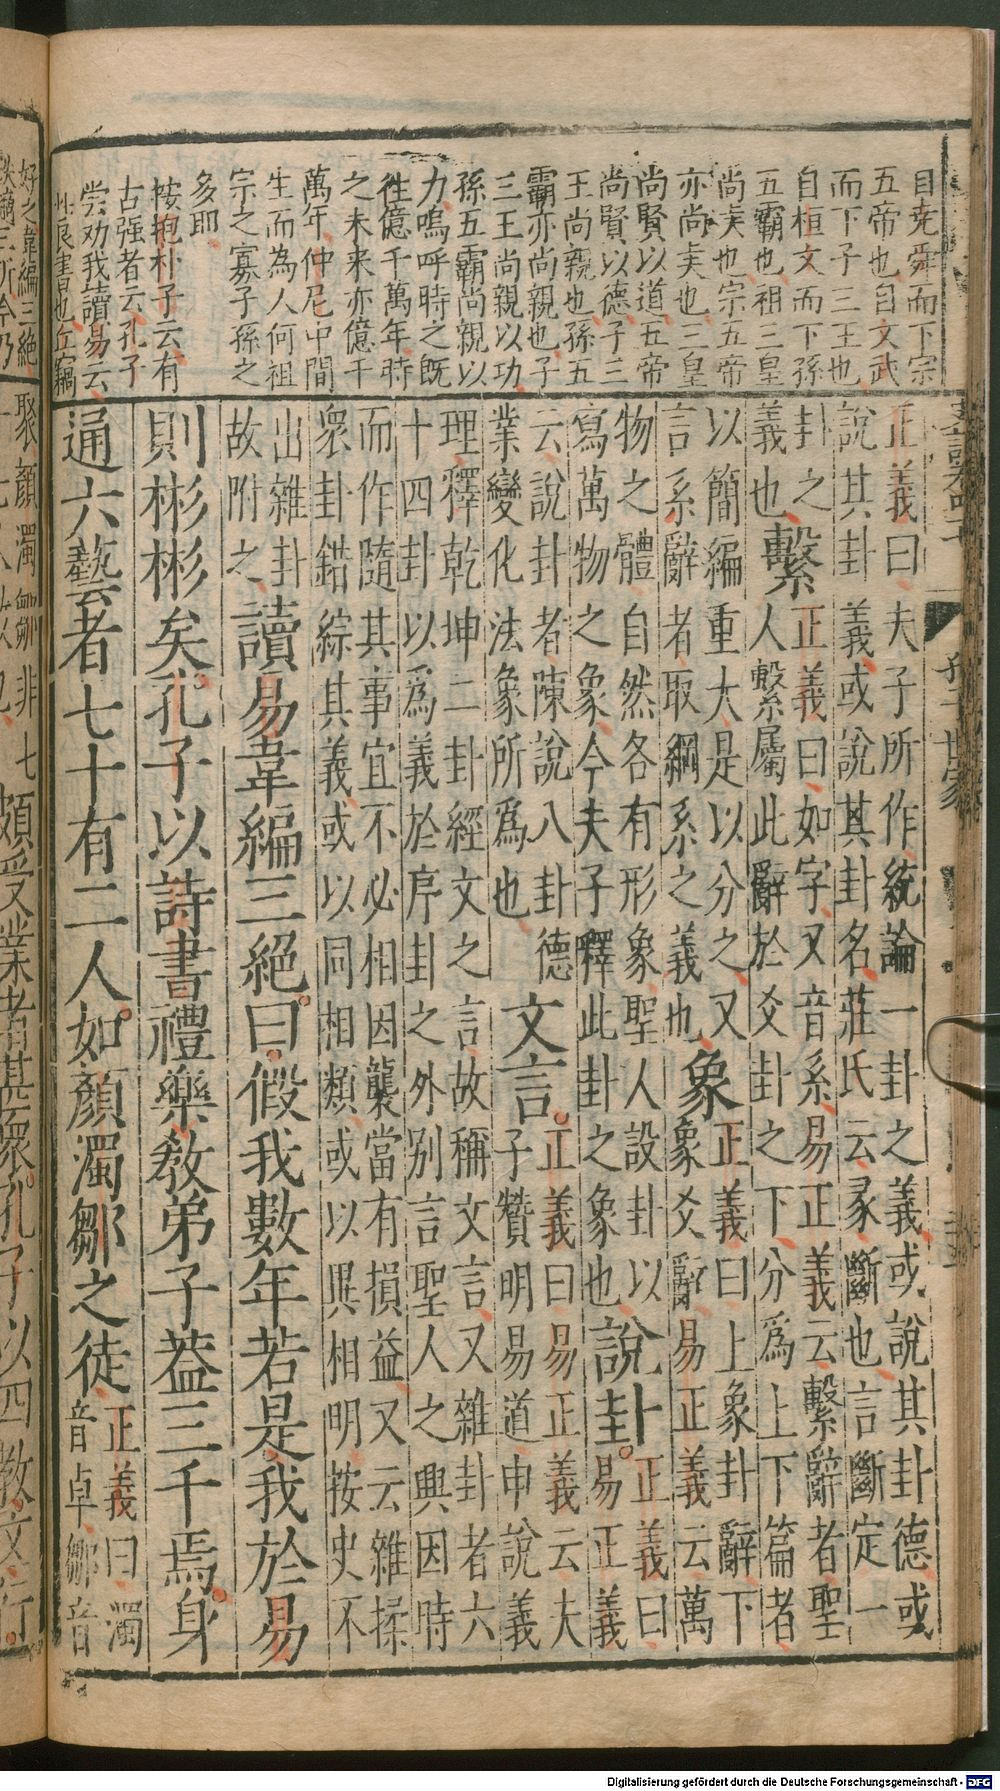 自堯舜而下宗
五帝也自文武
而下子三王也
自桓文而下孫
五霸也祖三皇
尚賢也宗五帝
亦尚賢也三皇
尚賢以道五帝
尚賢以德子三
王尚親也孫五
霸亦尚親也子
三王尚親以功
孫五霸尚親以
力嗚呼時之旣
徃億千萬年時
之未来亦億千
萬年仲尼中間
生而為人何祖
宗之寡子孫之
多耶
按抱朴子云有
古强者云孔子
尝劝我讀易云
此良書也丘竊
孔子世家
正義曰夫子所作統論一卦之義或說其卦德或
說其卦義或說其卦名莊氏云彖斷也言斷定一
卦之
義也
繫
正義曰如字又音系易正義云繫辭者聖
人繫屬此辭於爻卦之下分爲上下篇者
以簡編重大是以分之又
言系辭者取綱系之義也
象
正義曰上象卦辭下
象爻辭易正義云萬
物之體自然各有形象聖人設卦以
寫萬物之象今夫子釋此卦之象也
說卦。
正義曰
易正義
云說卦者陳說八卦德
業變化法象所爲也
文言。
正義曰易正義云夫
子贊明易道申說義
理釋乾坤二卦經文之言故稱文言又雜卦者六
十四卦以爲義於序卦之外別言聖人之興因時
而作隨其事宜不必相因襲當有損益又云雜揉
衆卦錯綜其義或以同相類或以異相明按史不
出雜卦
故附之
讀易韋編三絕。曰。假我數年若是我於易
則彬彬矣。孔子以詩書禮樂教弟子葢三千焉。身
通六藝者七十有二人。如顏濁鄒之徒
正義曰濁
音卓鄒音
好之韋編三絕
聚顏濁鄒非七
頗受業者甚衆。孔子以四教文行。
Digitalisierung gefördert durch die Deutsche Forschungsgemeinschaft - DFG